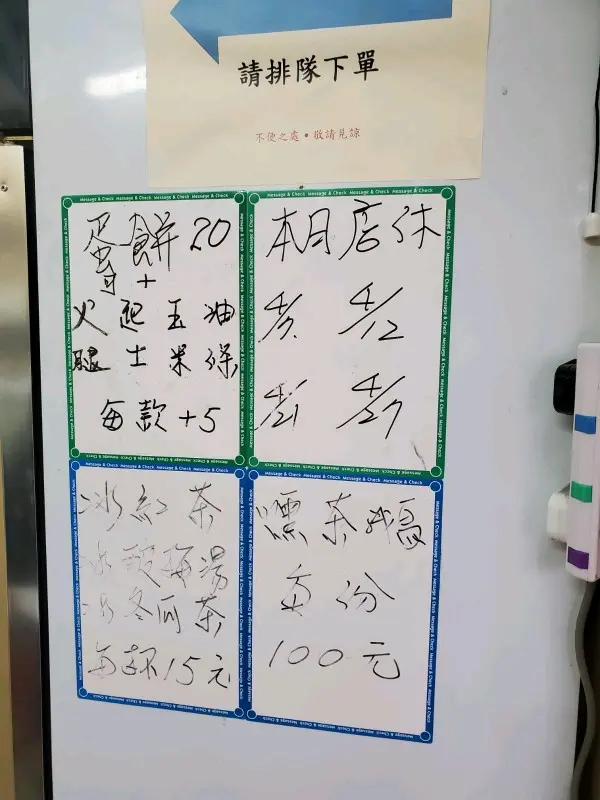 請排隊下單
不便之處•敬請見諒
Message & Check
蛋餅20
+
火起玉油
腿士米條
每款+5
本月店休
4/12
4/21 4/27
冰紅茶
冰酸梅湯
冰冬瓜茶
每杯15元
茶鵝
每份
100元